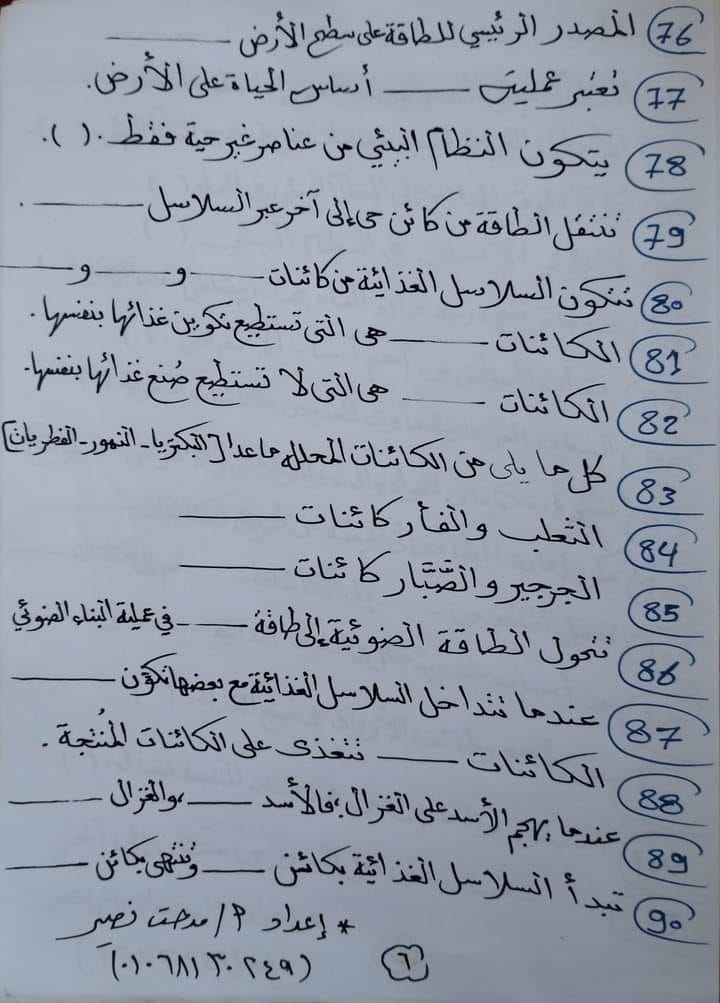 76 المصدر الرئيسي للطاقة على سطح الأرض ـــــــ
77 تعتبر عملية ـــــــ أساس الحياة على الأرض.
78 يتكون النظام البيئي من عناصر غير حية فقط. ( ).
79 تنتقل الطاقة من كائن حى إلى آخر عبر السلاسل ـــــــ.
80 تتكون السلاسل الغذائية من كائنات ـــــــ و ـــــــ و ـــــــ
81 الكائنات ـــــــ هى التى تستطيع تكوين غذائها بنفسها.
82 الكائنات ـــــــ هى التى لا تستطيع صُنع غذائها بنفسها.
83 كل ما يلى من الكائنات المحلله ما عدا [البكتريا - النمور - الفطريات]
84 الثعلب والفأر كائنات ـــــــ
85 الجرجير والصَّبَّار كائنات ـــــــ
86 تتحول الطاقة الضوئية إلى طاقة ـــــــ فى عملية البناء الضوئي
87 عندما تتداخل السلاسل الغذائية مع بعضها تكوّن ـــــــ
88 الكائنات ـــــــ تتغذى على الكائنات المُنتجة.
89 عندما يهجم الأسد على الغزال، فالأسد ـــــــ، والغزال ـــــــ
90 تبدأ السلاسل الغذائية بكائن ـــــــ وتنتهى بكائن ـــــــ
* إعداد م/ مدحت نصير
(٠١٠٦٨١٣٠٢٤٩)
٦